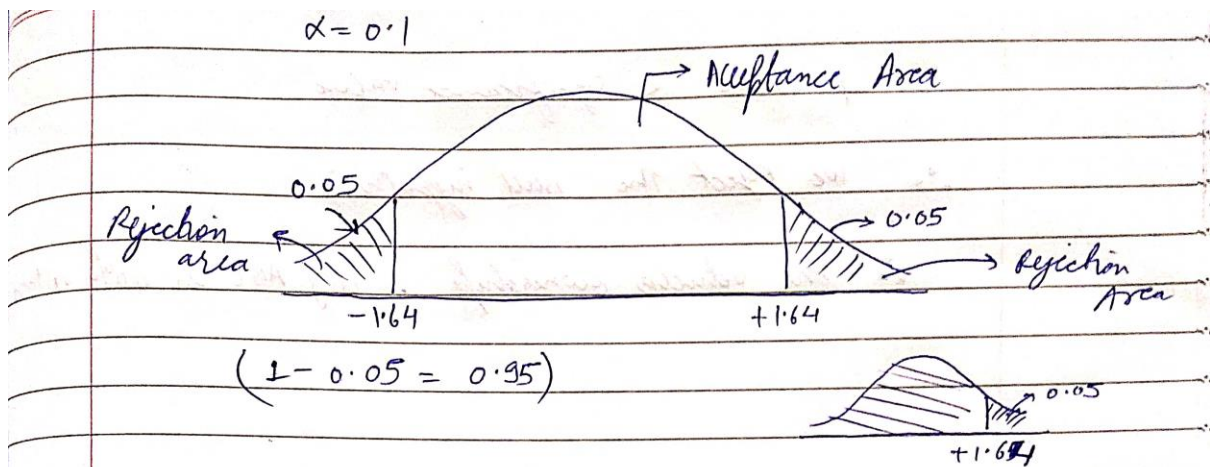 α = 0.1
Acceptance Area
0.05
Rejection
area
0.05
Rejection
Area
-1.64
+1.64
(1 - 0.05 = 0.95)
0.05
+1.64